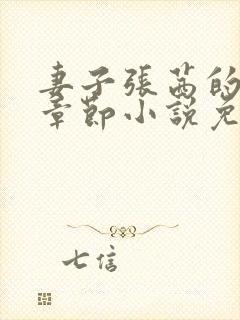 妻子張茜的
章節小說免
七信